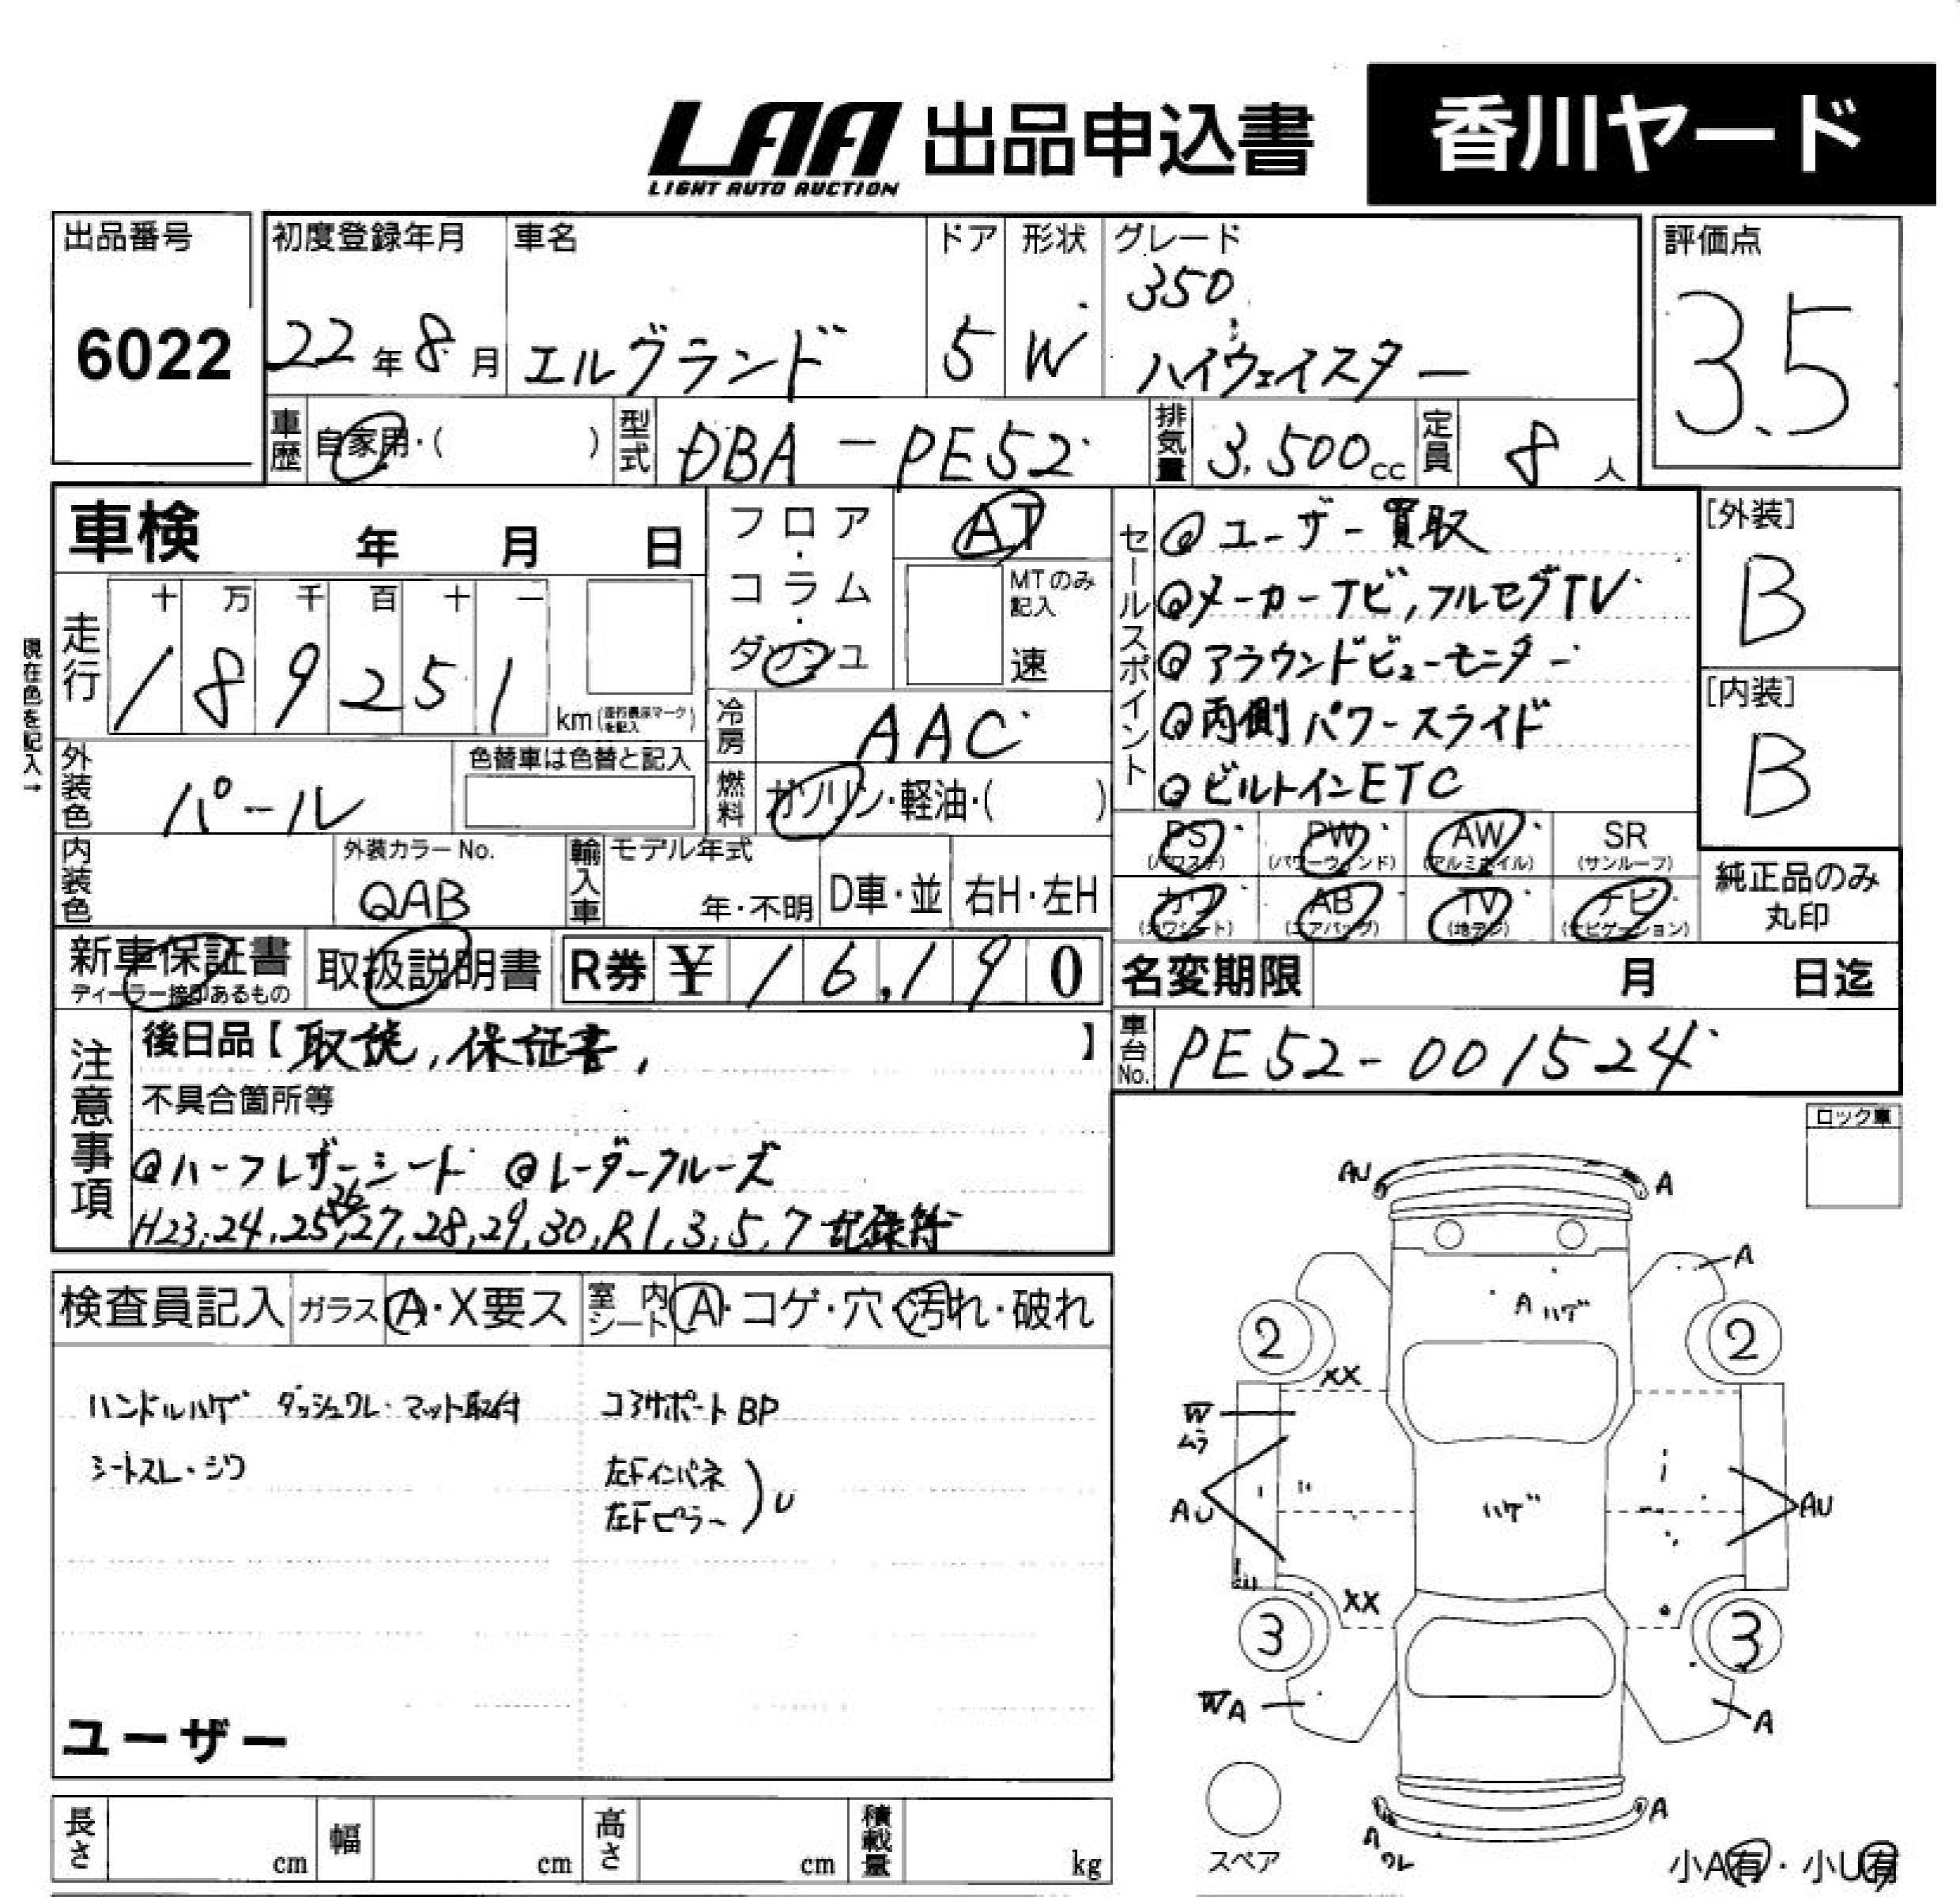 LAA 出品申込書 香川ヤード
LIGHT AUTO AUCTION
出品番号 6022
初度登録年月 22年8月
車名 エルグランド
ドア 5
形状 W
グレード 350 ハイウェイスター
評価点 3.5
車歴 自家用・( )
型式 DBA-PE52
排気量 3.500cc
定員 8人
車検 年 月 日
フロア・コラム・ダッシュ
AT
MTのみ記入 速
走行 十 万 千 百 十 一
1 8 9 2 5 1 km (走行表示マークを記入)
現在色を記入→
冷房 AAC
外装色 パール
色替車は色替と記入
燃料 ガソリン・軽油・( )
内装色
外装カラーNo. QAB
輸入車 モデル年式 年・不明 D車・並 右H・左H
セールスポイント
@ユーザー買取
@メーカーナビ,フルセグTV
@アラウンドビューモニター
@両側パワースライド
@ビルトインETC
[外装] B
[内装] B
PS (パワステ) PW (パワーウィンド) AW (アルミホイル) SR (サンルーフ)
カワ (カワシート) AB (エアバッグ) TV (地デジ) ナビ (ナビゲーション)
純正品のみ丸印
新車保証書 ディーラー捺印あるもの
取扱説明書
R券 ¥ 1 6,1 9 0
名変期限 月 日迄
注意事項
後日品【取説,保証書, 】
車台No. PE52-001524
不具合箇所等
@ハーフレザーシート @レーダークルーズ
H23,24,25,26,27,28,29,30,R1,3,5,7 記録簿
ロック車
検査員記入 ガラス A・X要ス 室内シート A・コゲ・穴・汚れ・破れ
ハンドルハゲ ダッシュワレ・マット取付
シートスレ・シワ
コアサポートBP
左Fインパネ
左Fピラー
U
ユーザー
AU A
A
A ハゲ
2 2
XX
W
ムラ
AU ハゲ AU
XX
3 3
WA A
A
A
ワレ
スペア
小A有・小U有
長さ cm 幅 cm 高さ cm 積載量 kg